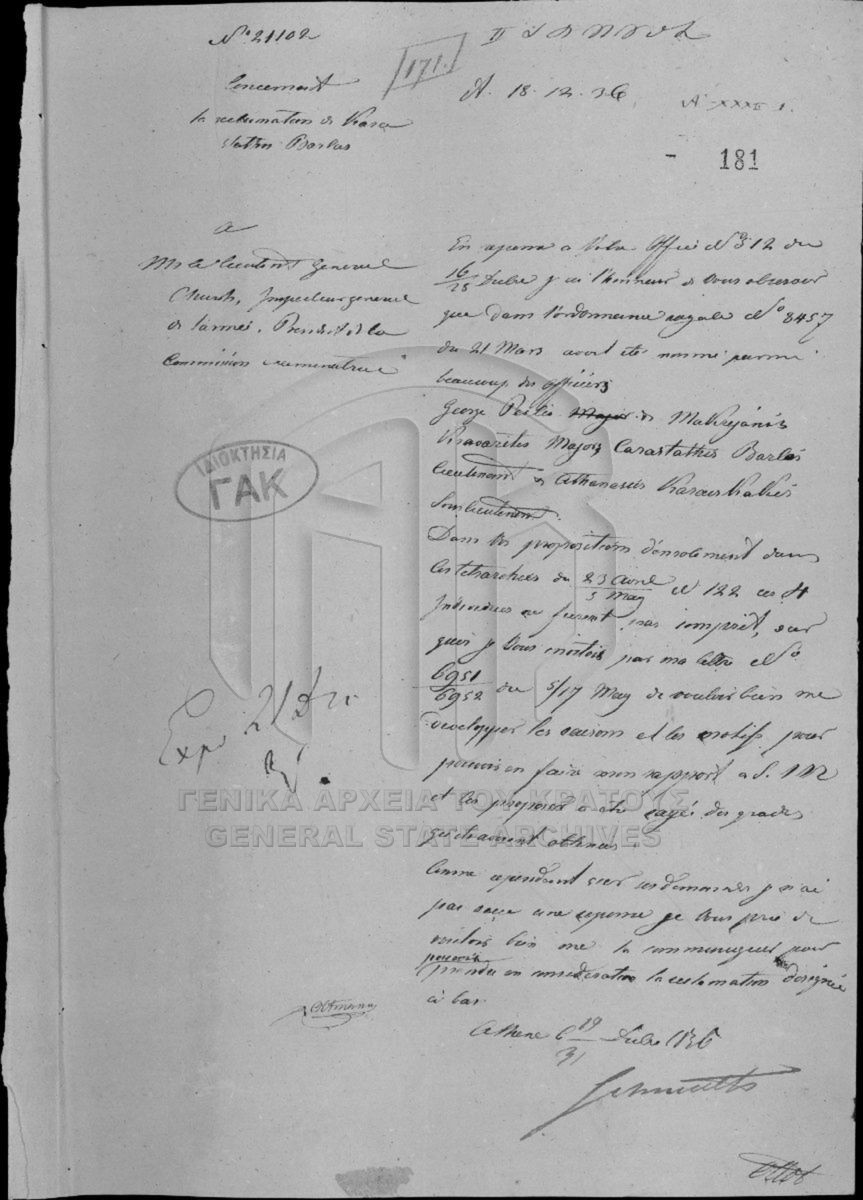 No 21102
171
Concernant
A. 18. 12. 36
la reclamation de Kara
stathis Barlas
181
a
Mr le Lieutent General
Church, Inspecteur general
de l'armée, President de la
Commission examinatrice
En reponse a Votre Office No 312 du
16/28 Dcbre j'ai l'honneur de Vous observer
que dans l'ordonnance royale No 8457
du 21 Mars avoit été nommé parmi
beaucoup des officiers
George Major de Makryanis
Major Carastathis Barlas
Lieutenant & Athanasios Karaiskakis
Souslieutenant.
Dans les propositions d'enrolement dans
les tetrarchies du 23 Avril/5 May No 122 ces 4
Individus ne furent pas compris, sur
quoi je Vous invitois par ma lettre No
6951/6952 du 5/17 May de vouloir bien me
developper les raisons et les motifs pour
pouvoir en faire mon rapport a S. M
et les proposer a etre rayés des grades
obtenus.
Comme cependant sur ces demandes je n'ai
pas reçu une reponse je Vous prie de
vouloir bien me la communiquer pour
pouvoir
prendre en consideration la reclamation designée
a bas
Athene 19/31 Dcbre 1836
Exp. 21 Dec
ΙΔΙΟΚΤΗΣΙΑ
ΓΑΚ
ΓΕΝΙΚΑ ΑΡΧΕΙΑ ΤΟΥ ΚΡΑΤΟΥΣ
GENERAL STATE ARCHIVES